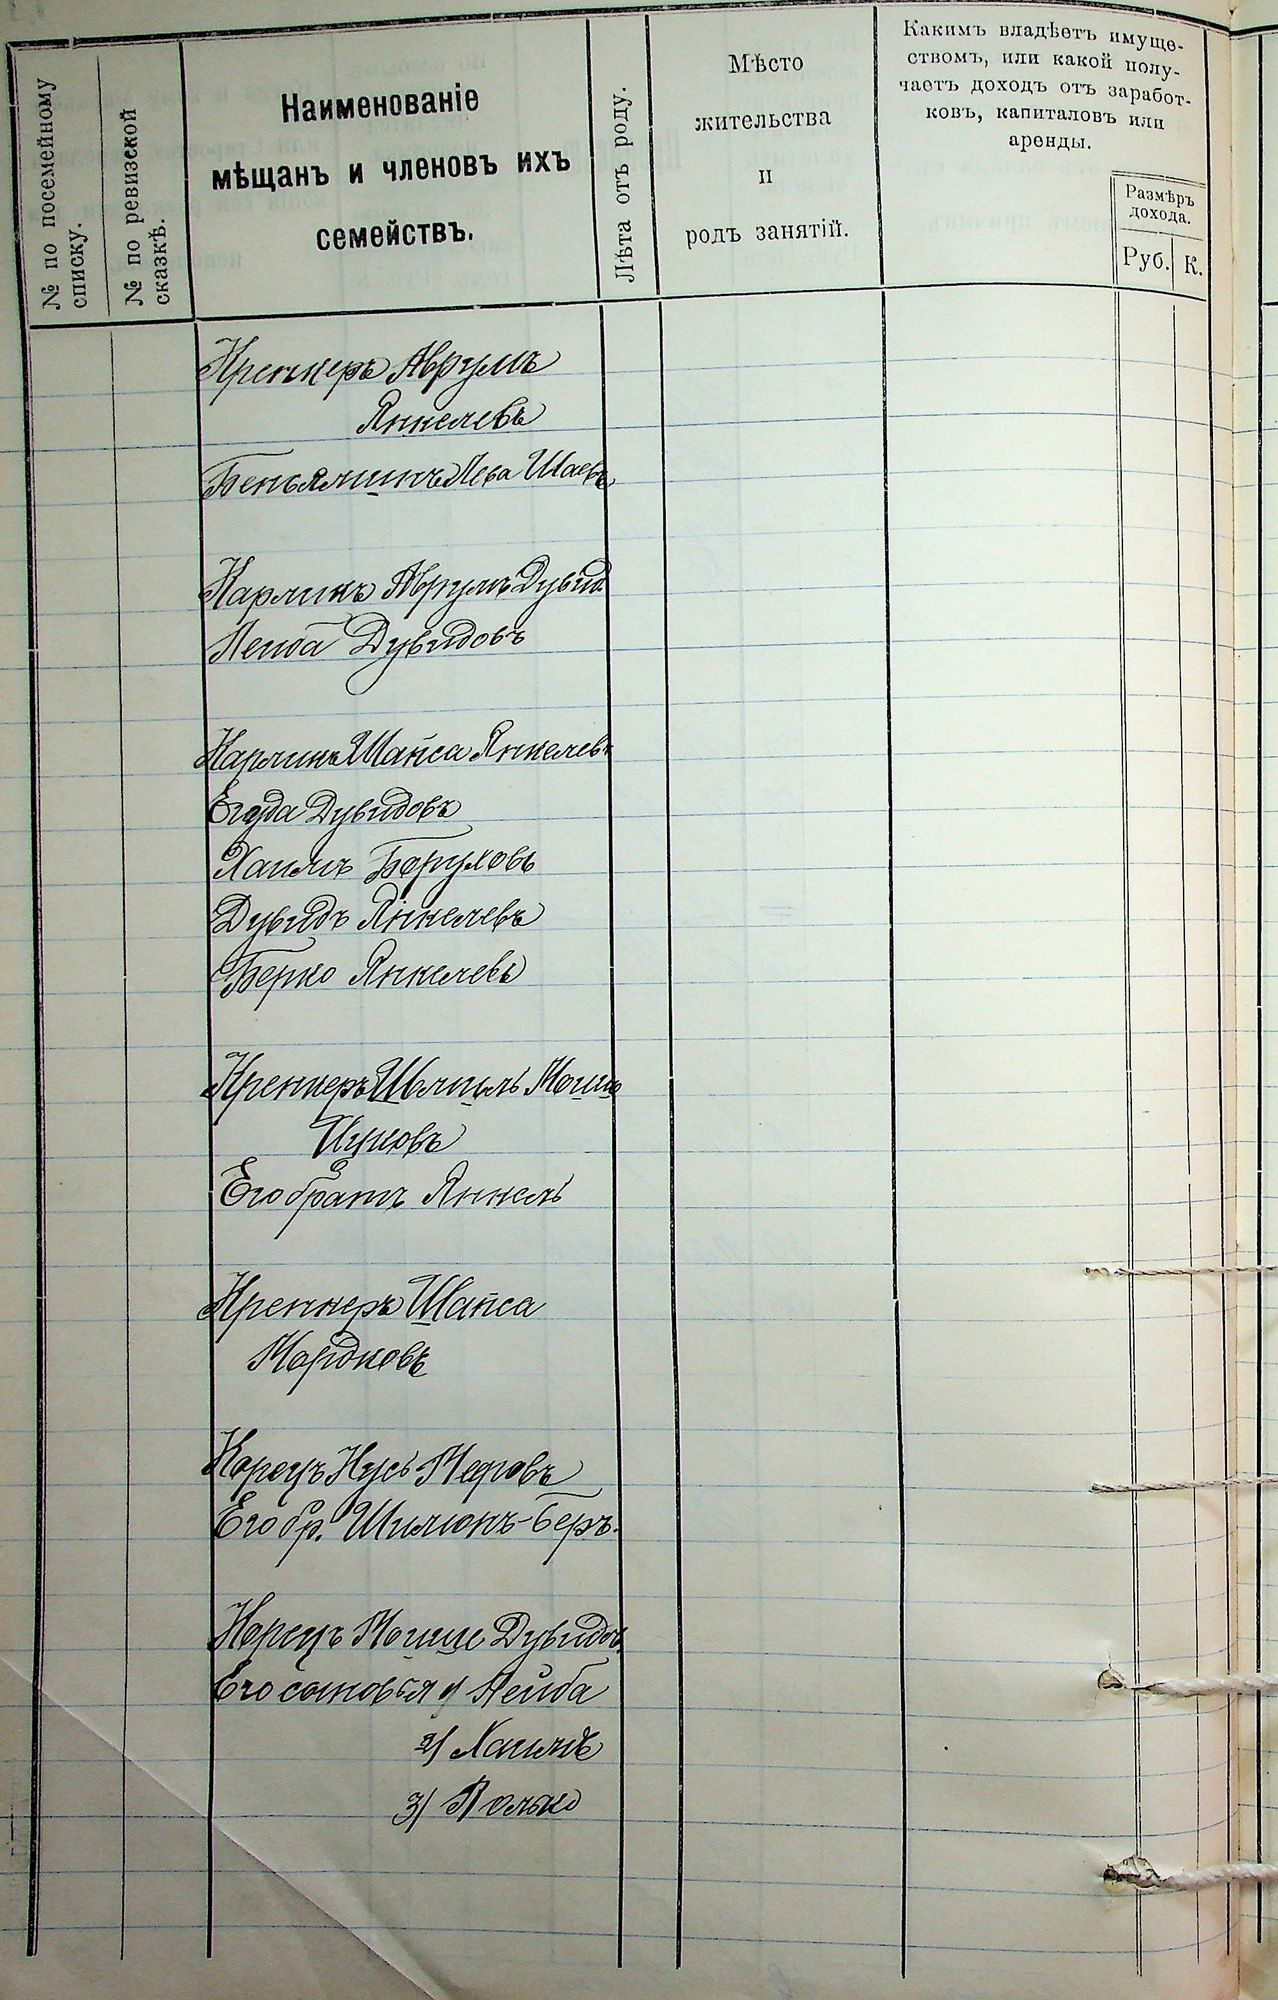 № по посемейному
списку.
№ по ревизской
сказкѣ.
Наименованіе
мѣщанъ и членовъ ихъ
семействъ.
Лѣта отъ роду.
Мѣсто
жительства
и
родъ занятій.
Какимъ владѣетъ имуще-
ствомъ, или какой полу-
чаетъ доходъ отъ заработ-
ковъ, капиталовъ или
аренды.
Размѣръ
дохода.
Руб.
К.
Кренкеръ Аврумъ
Янкелевъ
Беньяминъ Лева Шаевъ
Карликъ Аврумъ Дувид.
Лейба Дувидовъ
Карликъ Шапса Янкелевъ
Егуда Дувидовъ
Хаимъ Боруховъ
Дувидъ Янкелевъ
Берко Янкелевъ
Кренкеръ Шмиль Мошко
Ицковъ
Его братъ Янкель
Кренкеръ Шапса
Мордковъ
Корецъ Нусь Меровъ
Его бр. Шимонъ-Беръ.
Корецъ Мошше Дувидов.
Его сыновья 1) Лейба
2) Хаимъ
3) Волько